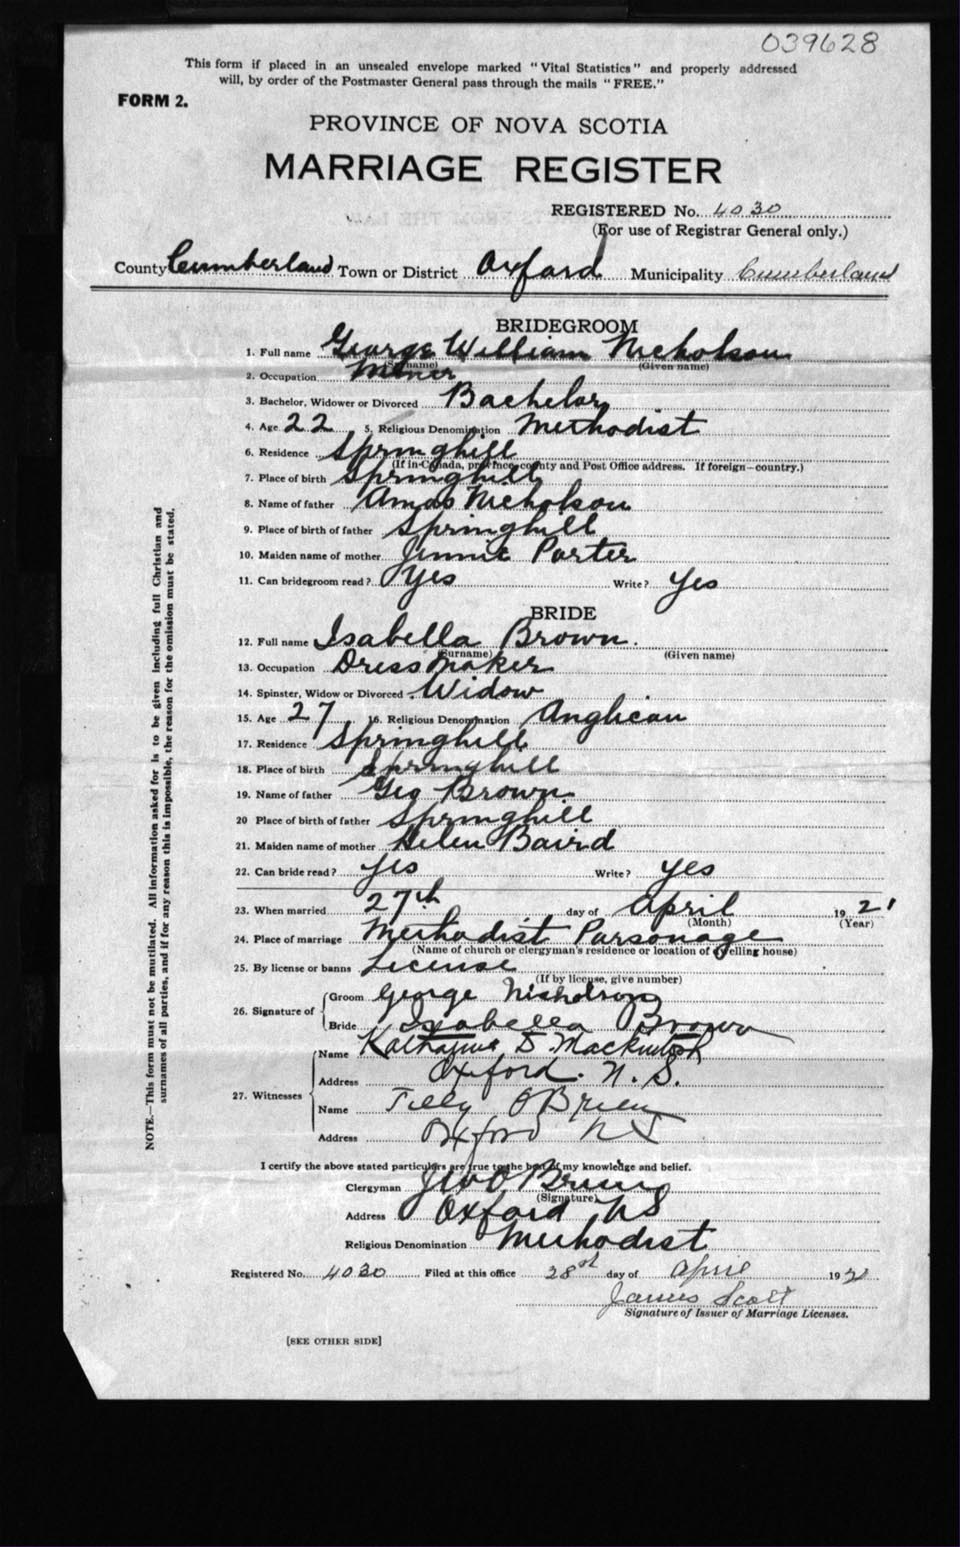 039628
This form if placed in an unsealed envelope marked "Vital Statistics" and properly addressed
will, by order of the Postmaster General pass through the mails "FREE."
FORM 2.
PROVINCE OF NOVA SCOTIA
MARRIAGE REGISTER
REGISTERED No. 4030
(For use of Registrar General only.)
County Cumberland Town or District Oxford Municipality Cumberland
BRIDEGROOM
1. Full name George William Nicholson
(Surname) (Given name)
2. Occupation Miner
3. Bachelor, Widower or Divorced Bachelor
4. Age 22 5. Religious Denomination Methodist
6. Residence Springhill
(If in Canada, province, county and Post Office address. If foreign—country.)
7. Place of birth Springhill
8. Name of father Amos Nicholson
9. Place of birth of father Springhill
10. Maiden name of mother Jennie Porter
11. Can bridegroom read? Yes Write? Yes
BRIDE
12. Full name Isabella Brown.
(Surname) (Given name)
13. Occupation Dressmaker
14. Spinster, Widow or Divorced Widow
15. Age 27 16. Religious Denomination Anglican
17. Residence Springhill
18. Place of birth Springhill
19. Name of father Geo Brown
20 Place of birth of father Springhill
21. Maiden name of mother Helen Baird
22. Can bride read? Yes Write? Yes
23. When married 27th day of April 1921
(Month) (Year)
24. Place of marriage Methodist Parsonage
(Name of church or clergyman's residence or location of dwelling house)
25. By license or banns License
(If by license, give number)
26. Signature of Groom George Nicholson
Bride Isabella Brown
27. Witnesses Name Mackintosh
Address Oxford. N. S.
Name Tilly OBrien
Address Oxford N S
I certify the above stated particulars are true to the best of my knowledge and belief.
Clergyman
(Signature)
Address Oxford NS
Religious Denomination Methodist
Registered No. 4030 Filed at this office 28 day of April 192
James Scott
Signature of Issuer of Marriage Licenses.
[SEE OTHER SIDE]
NOTE.—This form must not be mutilated. All information asked for is to be given including full Christian and
surnames of all parties, and if for any reason this is impossible, the reason for the omission must be stated.